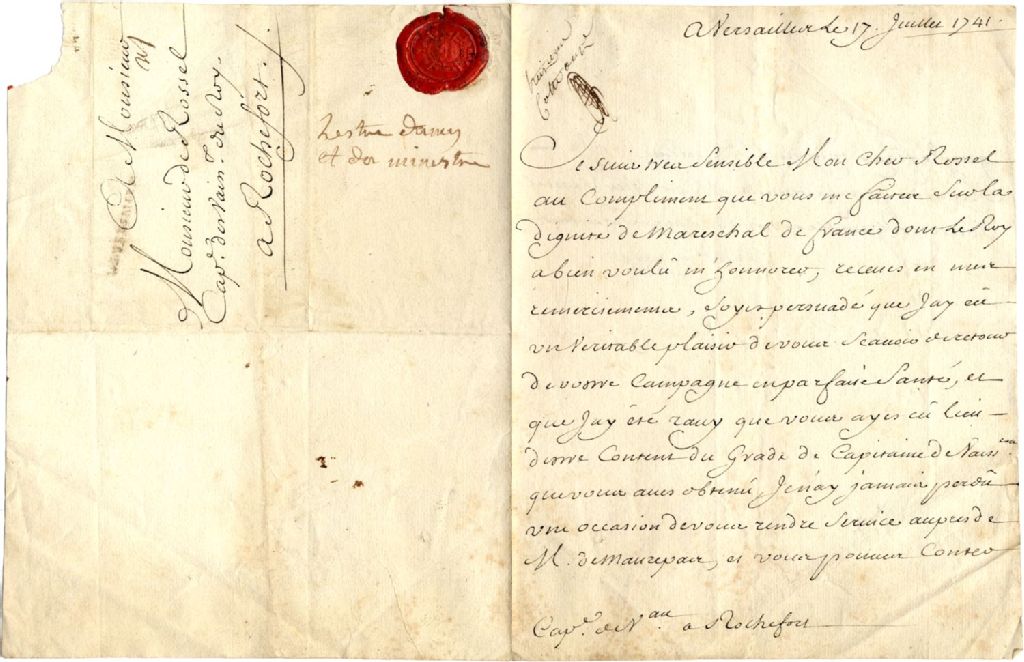 A Monsieur
Monsieur de Rossel
Cap.e des Vaiss.x du Roy.
a Rochefort.
Lestre damis
et de ministre
a Versailles Le 17. Juillet 1741.
Je suis tres Sensible Mon Cher Rossel
au Compliment que vous me faites Sur la
dignité de Mareschal de france dont Le Roy
a bien voulû m'honnorer, receves en mes
remerciements, Soyes persuadé que Jay eû
un Veritable plaisir de vous Scavoir de retour
de vostre Campagne en parfaite Santé, et
que Jay été ravy que vous ayes eû lieu
destre Content du Grade de Capitaine de Vaiss.eau
que vous aves obtenû, Je n'ay jamais perdû
une occasion de vous rendre Service aupres de
M. de Maurepas, et vous pouves Conter
Cap.e de V.au a Rochefort